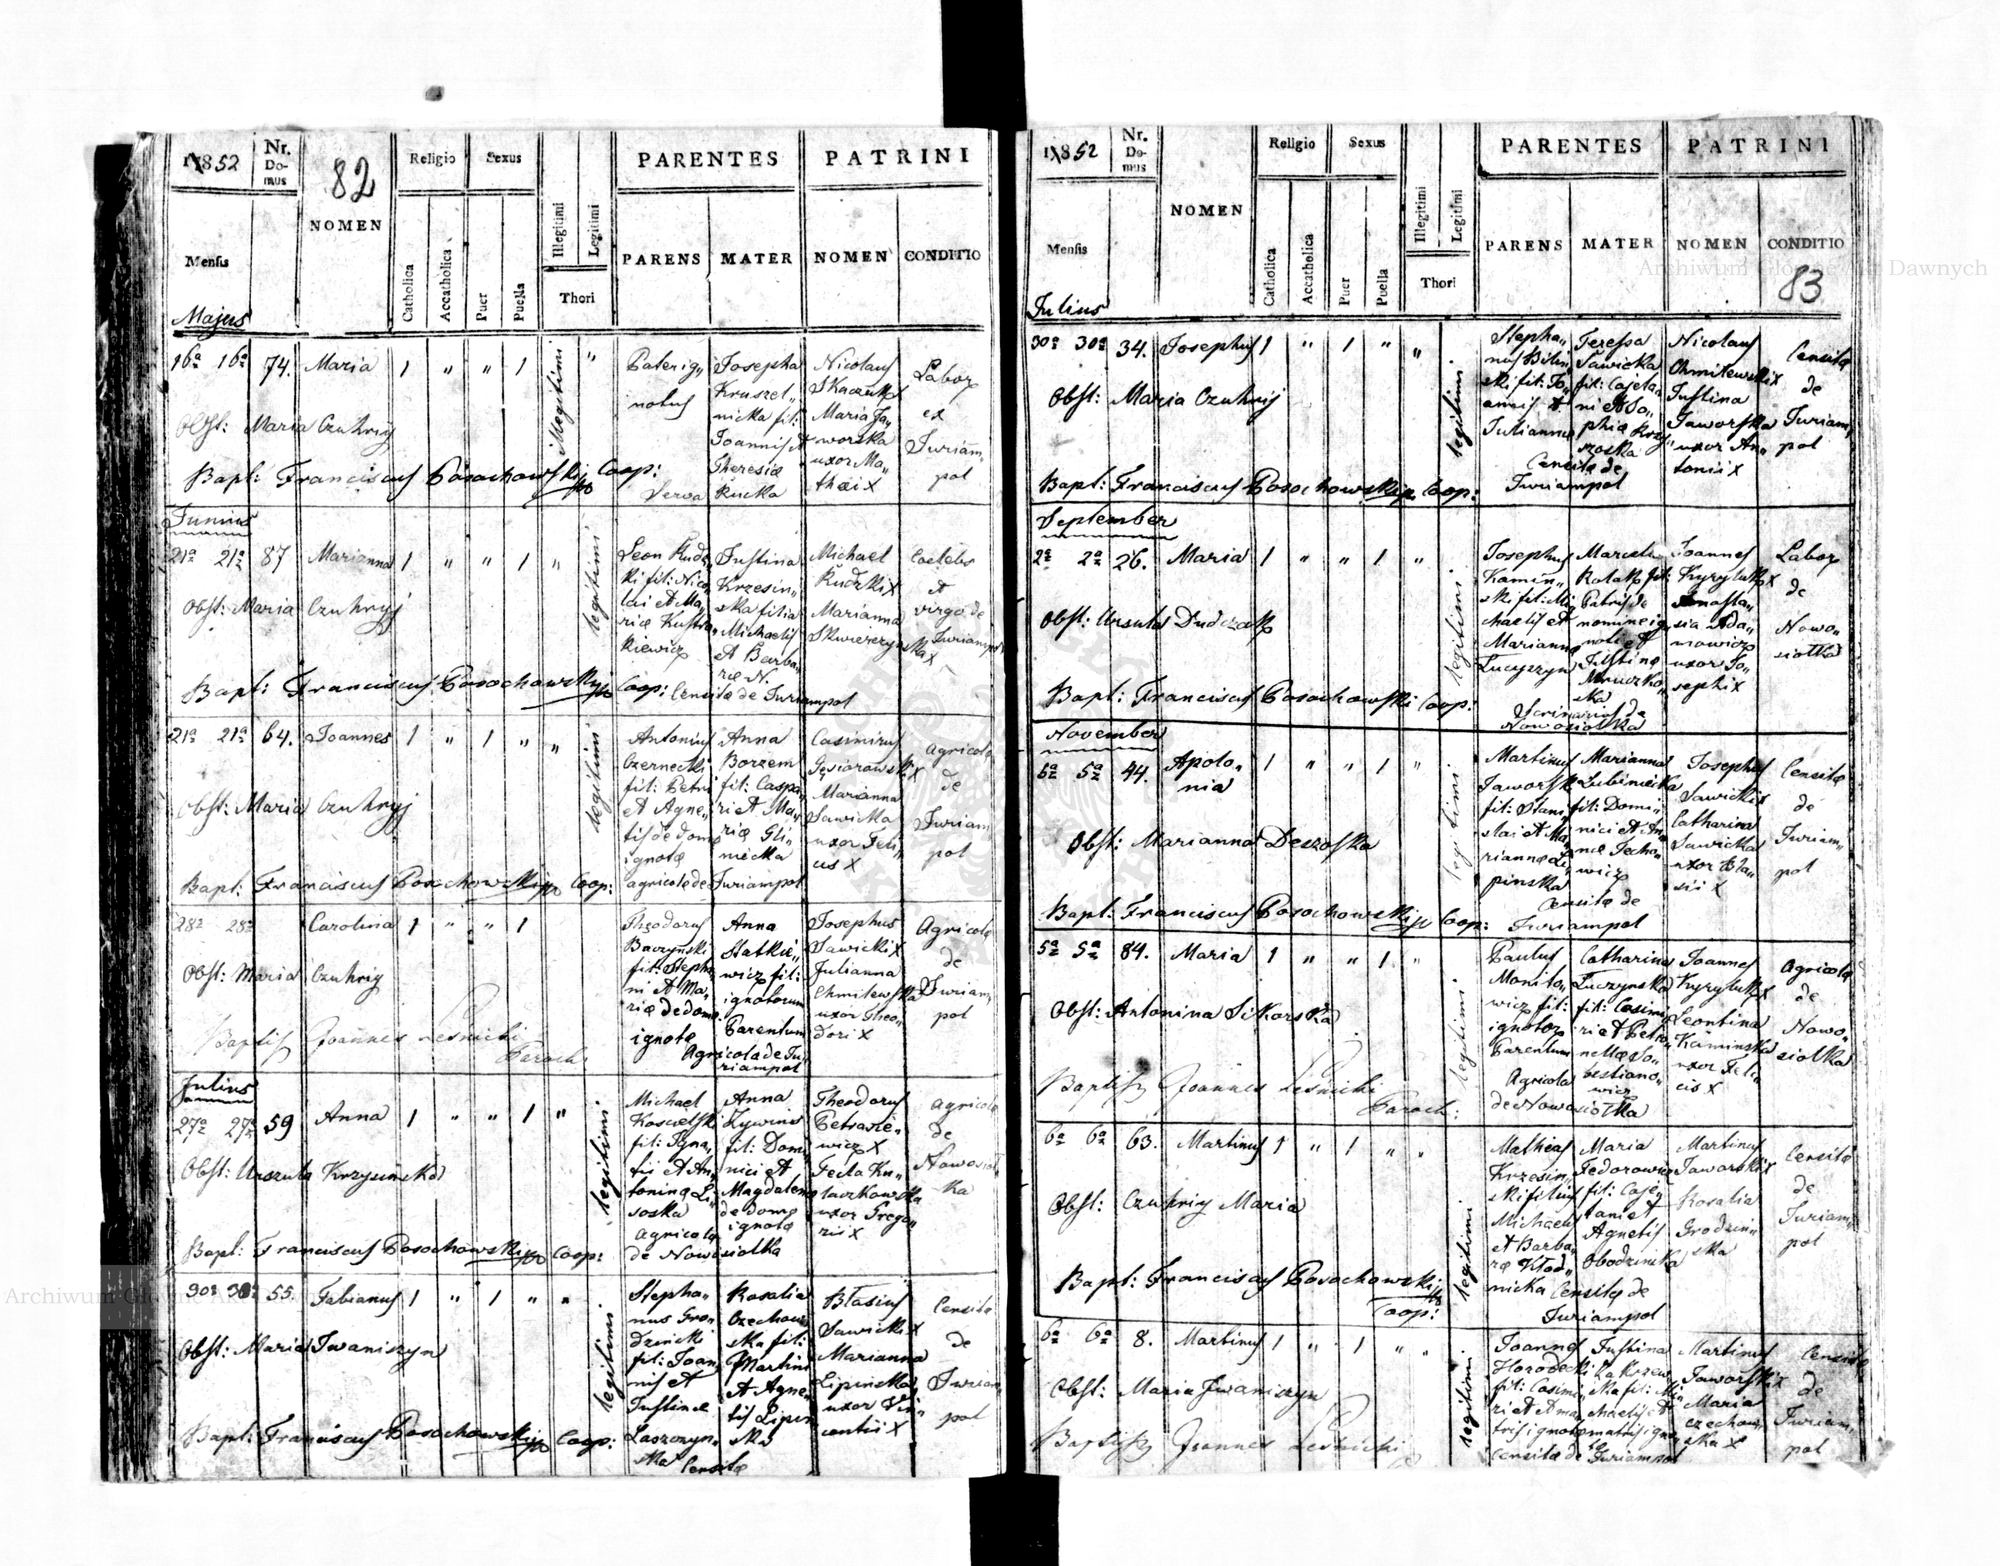 1852
Nr. Domus
82
NOMEN
Religio
Sexus
PARENTES
PATRINI
Mensis
Catholica
Accatholica
Puer
Puella
Illegitimi
Legitimi
Thori
PARENS
MATER
NOMEN
CONDITIO
Majus
16a 16a 74. Maria 1 " " 1 "
Illegitimi
Pater ig„
notus
Josepha
Kruszel„
nicka fil:
Joannis et
Theresiæ
Rucka
Serva
Nicolaus
Tkaczuk
Maria Ja„
worska
uxor Ma„
thæi X
Labor
ex
Juriam„
pol
Obst: Maria Czuhrij
Bapt: Franciscus Posochowski Coop:
Junius
21a 21a 87 Marianna 1 " " 1 "
legitimi
Leon Rudz„
ki fil: Nico„
lai et Ma„
riæ
kiewicz
Justina
Krzesin„
ska filia
Michaelis
et Barba„
ræ N.
Michael
Rudzki X
Marianna
Coelebs
et
virgo de
Juriampol
Obst: Maria Czuhryj
Bapt: Franciscus Posochowski Coop: Censitæ de Juriampol
21a 21a 64. Joannes 1 " 1 " "
legitimi
Antonius
Czernecki
fil: Petri
et Agne„
tis de domo
ignotæ
Anna
Borzem
fil: Caspa„
ri et Ma„
riæ Gli„
nicka
Casimirus
Gąsiorowski X
Marianna
Sawicka
uxor Feli„
cis X
Agricola
de
Juriam„
pol
Obst: Maria Czuhryj
Bapt: Franciscus Posochowski Coop: agricolæ de Juriampol
28a 28a Carolina 1 " " 1
Theodorus
Baczyński
fil: Stepha„
ni et Ma„
riæ de domo
ignotæ
Anna
Statkie„
wicz fil:
ignotorum
Parentum
Agricola de Ju„
riampol
Josephus
Sawicki X
Julianna
Chmilewska
uxor Theo„
dori X
Agricola
de
Juriam„
pol
Obst: Maria Czuhrij
Baptis Joannes Leśnicki
Paroch:
Julius
27a 27a 59 Anna 1 " " 1 "
legitimi
Michael
Kosielski
fil: Igna„
tii et An„
toninæ Li„
soska
Agricolæ
de Nowosiołka
Anna
Zywino
fil: Domi
nici et
Magdalenæ
de domo
ignotæ
Theodorus
Petrasie„
wicz X
Tecla Ku„
laczkowska
uxor Grego„
rii X
Agricola
de
Nowosioł„
ka
Obst: Urszula Krzysińska
Bapt: Franciscus Posochowski Coop:
30a 30a 55. Fabianus 1 " 1 " "
legitimi
Stepha„
nus Gro„
dzicki
fil: Joan„
nis et
Justinæ
Laszczyn„
ska Censitæ
Rosalia
Czechow„
ska fil:
Martini
et Agne„
tis Lipin„
ska
Błasius
Sawicki X
Marianna
Lipińska
uxor Vin„
centii X
Censitæ
de
Juriam„
pol
Obst: Maria Iwaniszyn
Bapt: Franciscus Posochowski Coop:
1852
Nr. Domus
NOMEN
Religio
Sexus
PARENTES
PATRINI
Mensis
Catholica
Accatholica
Puer
Puella
Illegitimi
Legitimi
Thori
PARENS
MATER
NOMEN
CONDITIO
83
Julius
30a 30a 34. Josephus 1 " 1 " "
legitimi
Stepha„
nus Bilin„
ski fil: Jo„
annis et
Juliannæ
Teressa
Sawicka
fil: Cajeta„
ni et So„
phiæ Krzy„
zoska
Censitæ de
Juriampol
Nicolaus
Chmilewski X
Justina
Jaworska
uxor An„
tonii X
Censitæ
de
Juriam„
pol
Obst: Maria Czuhrij
Bapt: Franciscus Posochowski Coop:
September
2a 2a 26. Maria 1 " " 1 "
legitimi
Josephus
Kamiń„
ski fil: Mi„
chaelis et
Marianna
Lucyszyn
Marcela
Rolak fil:
Patris de
nomine ig„
noti et
Justinæ
Mruczko„
ska
Scrinarius de
Nowosiołka
Joannes
Kyryluk X
Anasta„
sia Ada„
mowicz
uxor Jo„
sephi X
Labor
de
Nowo„
siołka
Obst: Ursula Dudczak
Bapt: Franciscus Posochowski Coop:
November
5a 5a 44. Apolo„
nia 1 " " 1 "
legitimi
Martinus
Jaworski
fil: Stani„
slai et Ma„
riannæ Li„
pinska
Marianna
Lubiniecka
fil: Domi„
nici et An„
næ Techo„
wicz
Censitæ de
Juriampol
Josephus
Sawicki X
Catharina
Sawicka
uxor Bla„
sii X
Censitæ
de
Juriam„
pol
Obst: Marianna Deszoska
Bapt: Franciscus Posochowski Coop:
5a 5a 84. Maria 1 " " 1 "
legitimi
Paulus
Monito„
wicz fil:
ignotor
Parentum
Agricola
de Nowosiołka
Catharina
Luczynska
fil: Casimi„
ri et Petro„
nellæ Se„
bestiano„
wicz
Joannes
Kyryluk X
Leontina
Kaminska
uxor Feli„
cis X
Agricola
de
Nowo„
siolka
Obst: Antonina Sikorska
Baptisz Joannes Leśnicki
Paroch:
6a 6a 63. Martinus 1 " 1 " "
legitimi
Matheas
Krzesin„
ski filius
Michaelis
et Barba„
ræ Kłod„
nicka
Maria
Fedorowicz
fil: Caje„
tani et
Agnetis
Obodzinska
Censitæ de
Juriampol
Martinus
Jaworski X
Rosalia
Grodzin„
ska
Censitæ
de
Juriam„
pol
Obst: Czuhrij Maria
Bapt: Franciscus Posochowski
Coop:
6a 6a 8. Martinus 1 " 1 " "
legitimi
Joannes
Horodecki
fil: Casimi„
ri et ma„
tris ignotæ
Justina
fil: Mi„
chaelis et
matris igno„
tæ
Censitæ de Juriampol
Martinus
Jaworski X
Maria
Czechow„
ska X
Censitæ
de
Juriam„
pol
Obst: Maria Iwaniszyn
Baptisz Joannes Leśnicki
Archiwum Główne Akt Dawnych
Archiwum Główne Akt Dawnych